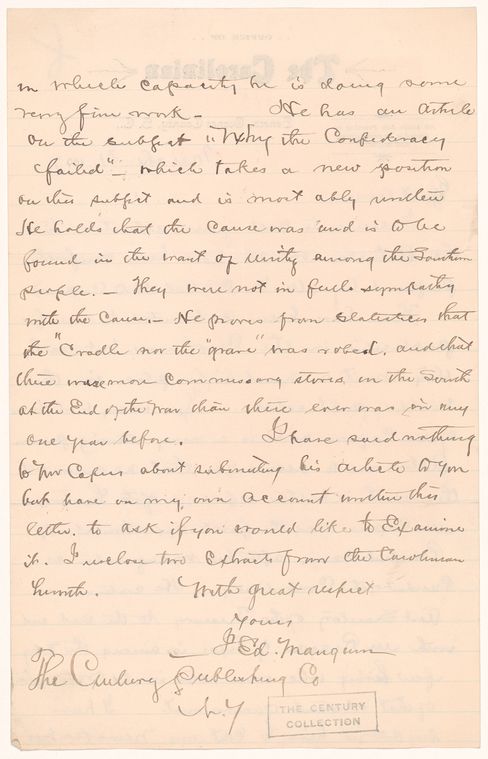 in which capacity he is doing some
very fine work – He has an Article
on the subject "Why the Confederacy
failed" – which takes a new position
on this subject and is most ably written
He holds that the Cause was and is to be
found in the want of unity among the Southern
people. – They were not in full sympathy
with the Cause. – He proves from statistics that
the "Cradle nor the "grave" was robed. and that
there was more Commissary stores in the South
at the End of the War than there ever was in any
One year before. I have said nothing
to Mr Capers about submitting his article to you
but have on my own account written this
letter. to ask if you would like to Examine
it. I enclose two Extracts from the Carolinian
herewith. With great respect
Yours
J Ed. Mangum
The Century Publishing Co
N. Y
THE CENTURY
COLLECTION
The Carolinian
OFFICE OF